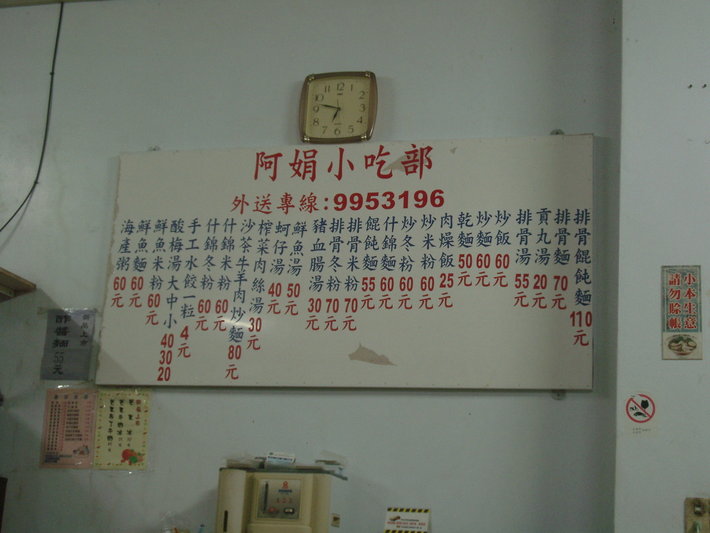 阿娟小吃部
外送專線:9953196
排骨餛飩麵110元
排骨麵70元
貢丸湯20元
排骨湯55元
炒飯60元
炒麵60元
乾麵50元
肉燥飯25元
炒米粉60元
炒冬粉60元
什錦麵60元
餛飩麵55元
排骨米粉70元
排骨冬粉70元
豬血腸湯30元
鮮魚湯50元
蚵仔湯40元
榨菜肉絲湯30元
沙茶牛羊肉炒麵80元
什錦米粉60元
什錦冬粉60元
手工水餃一粒4元
酸梅湯大中小403020
鮮魚米粉60元
鮮魚麵60元
海產粥60元
小本生意
請勿賒帳
新品上市
55元